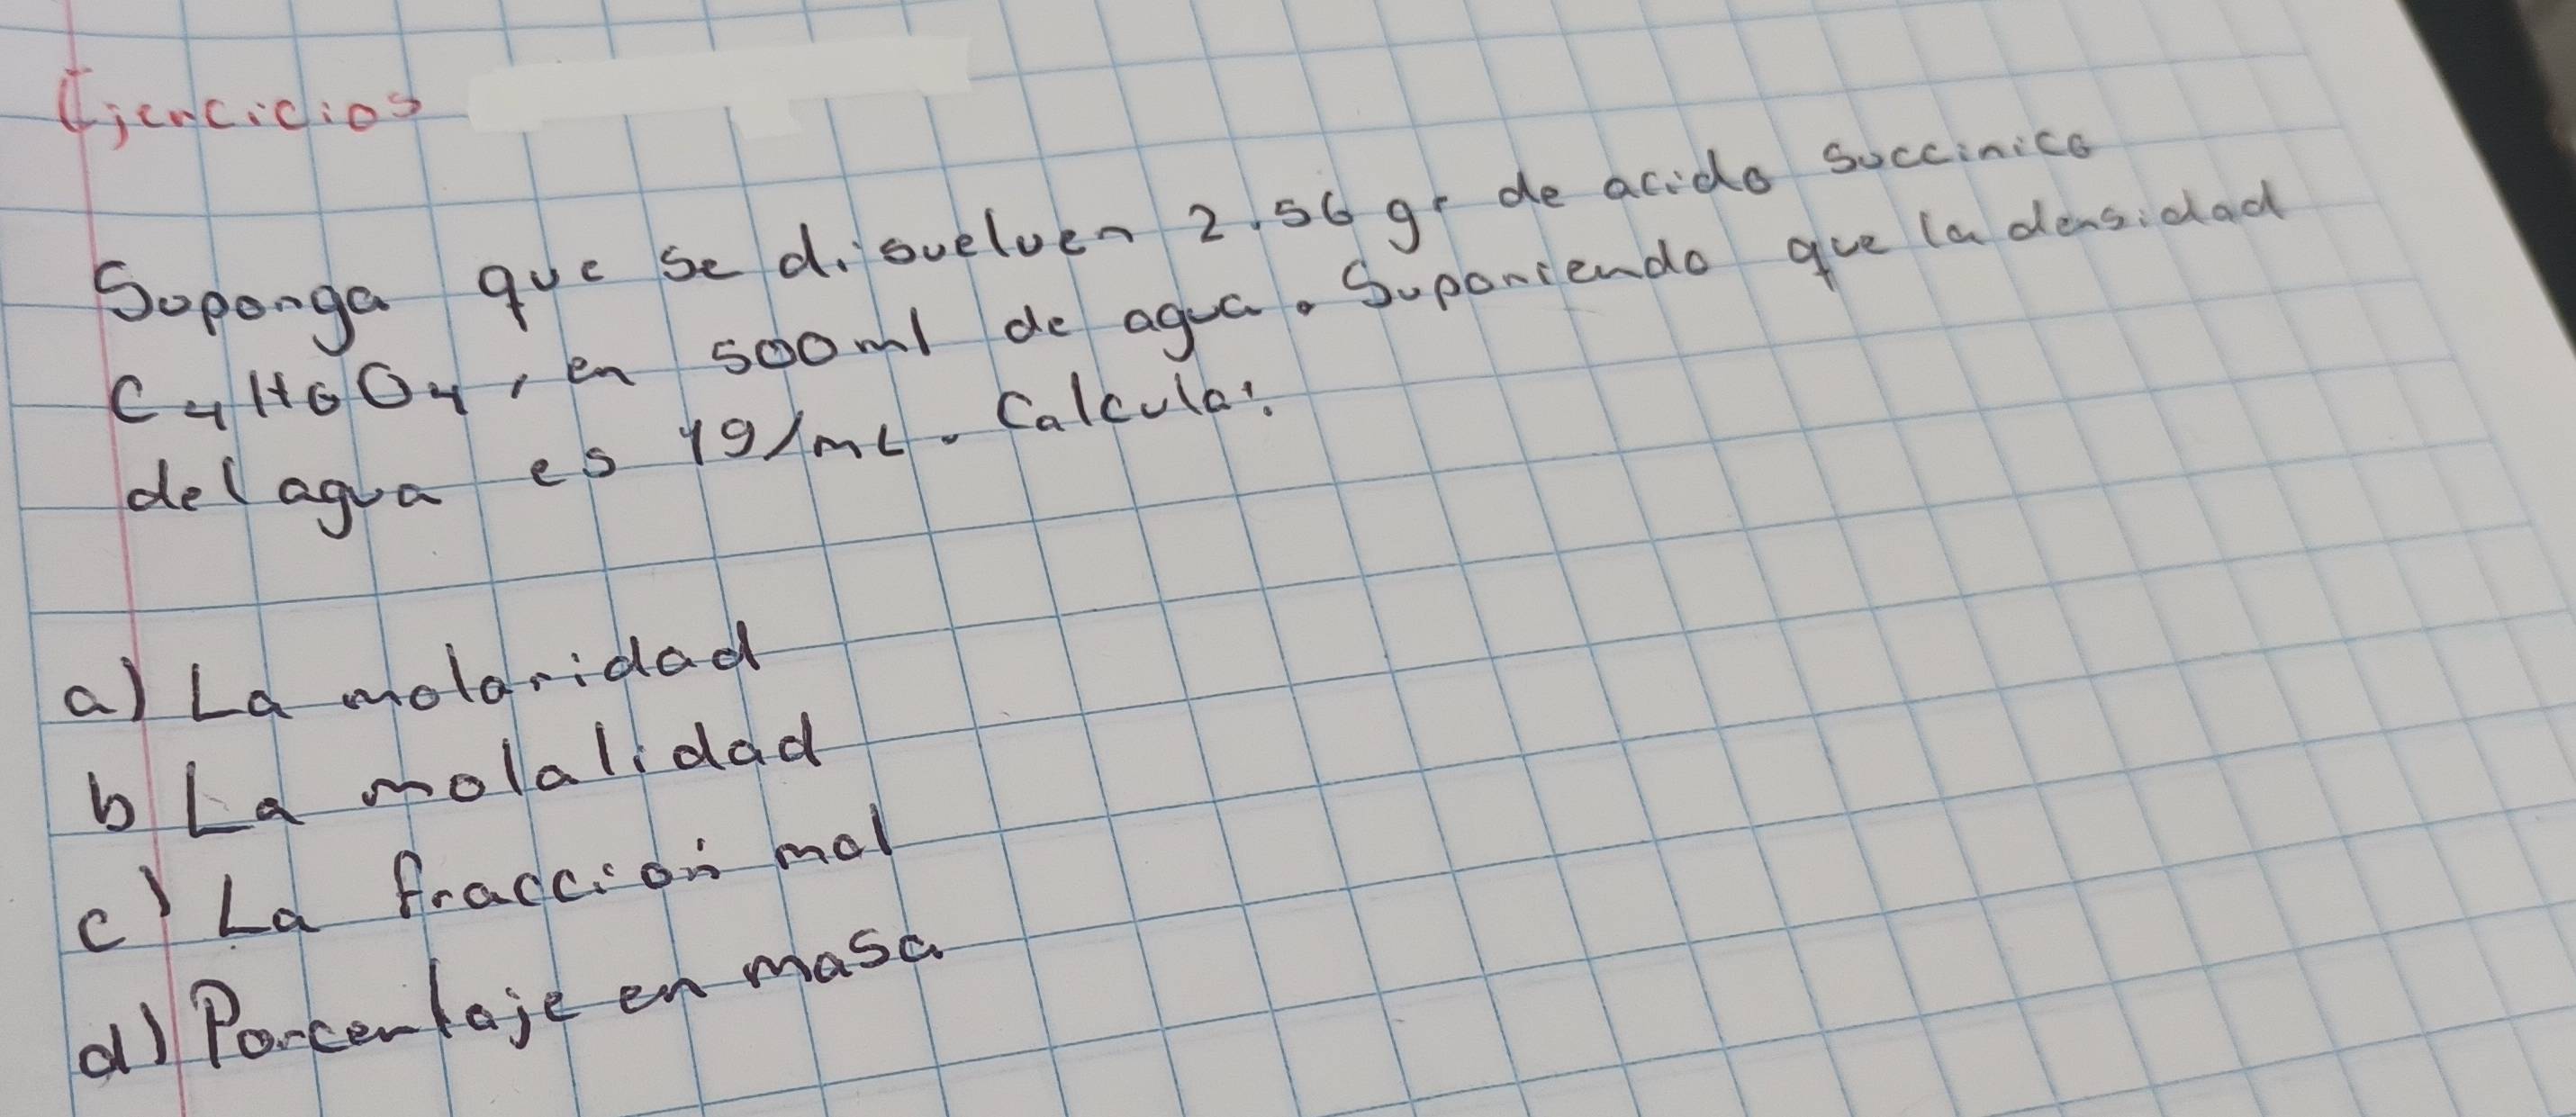 Ejercicios
Suponga que se disuelven 2.56 gr de acido succinico
C4H6O4, en 500ml de agua. Suponiendo que la densidad
del agua es 1g/mL. Calcula:
a) La molaridad
b La molalidad
c) La fracción mol
d) Porcentaje en masa